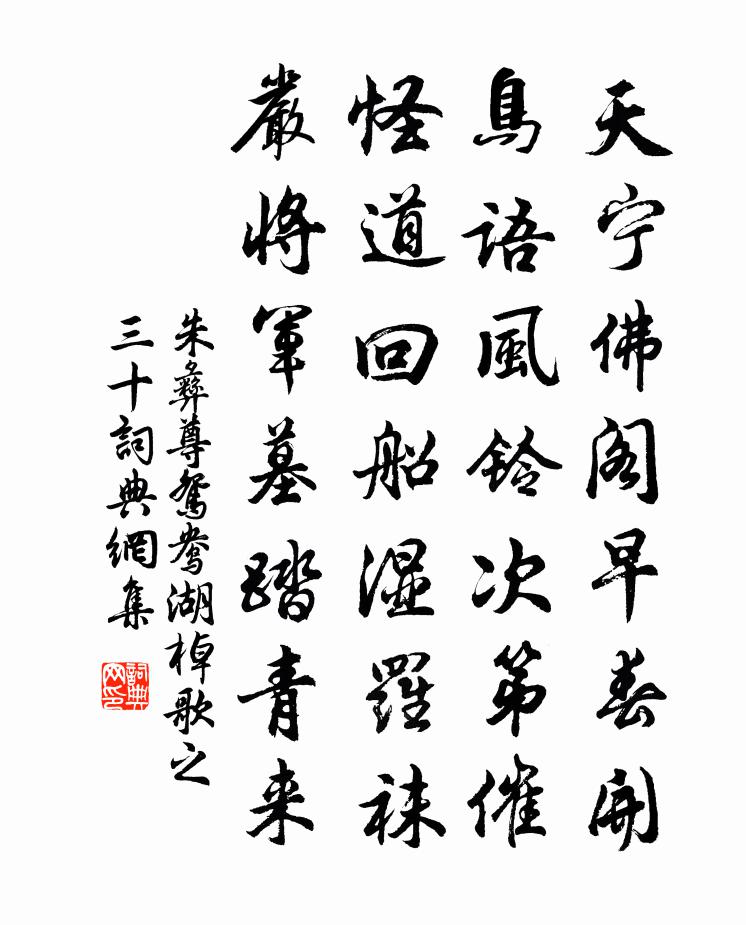 天宁佛阁早春開
鳥語風鈴次第催
怪道回船湿羅袜
嚴將軍墓踏青来
朱彝尊鴛鴦湖棹歌之
三十詞典網集
詞典网印